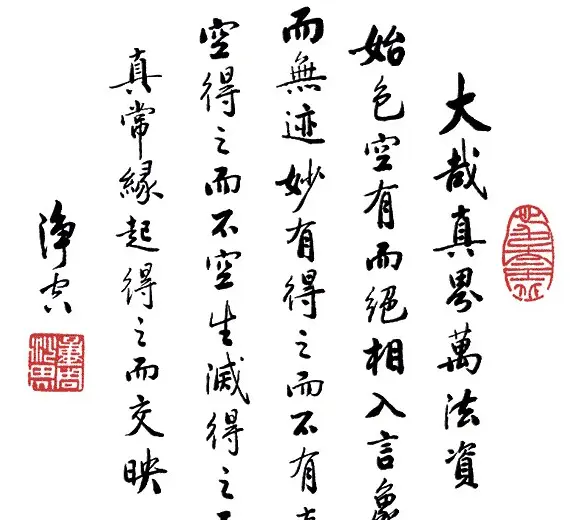 大哉真界萬法資
始色空有而絕相入言象
而無迹妙有得之而不有
空得之而不空生滅得之
真常緣起得之而交映
淨空